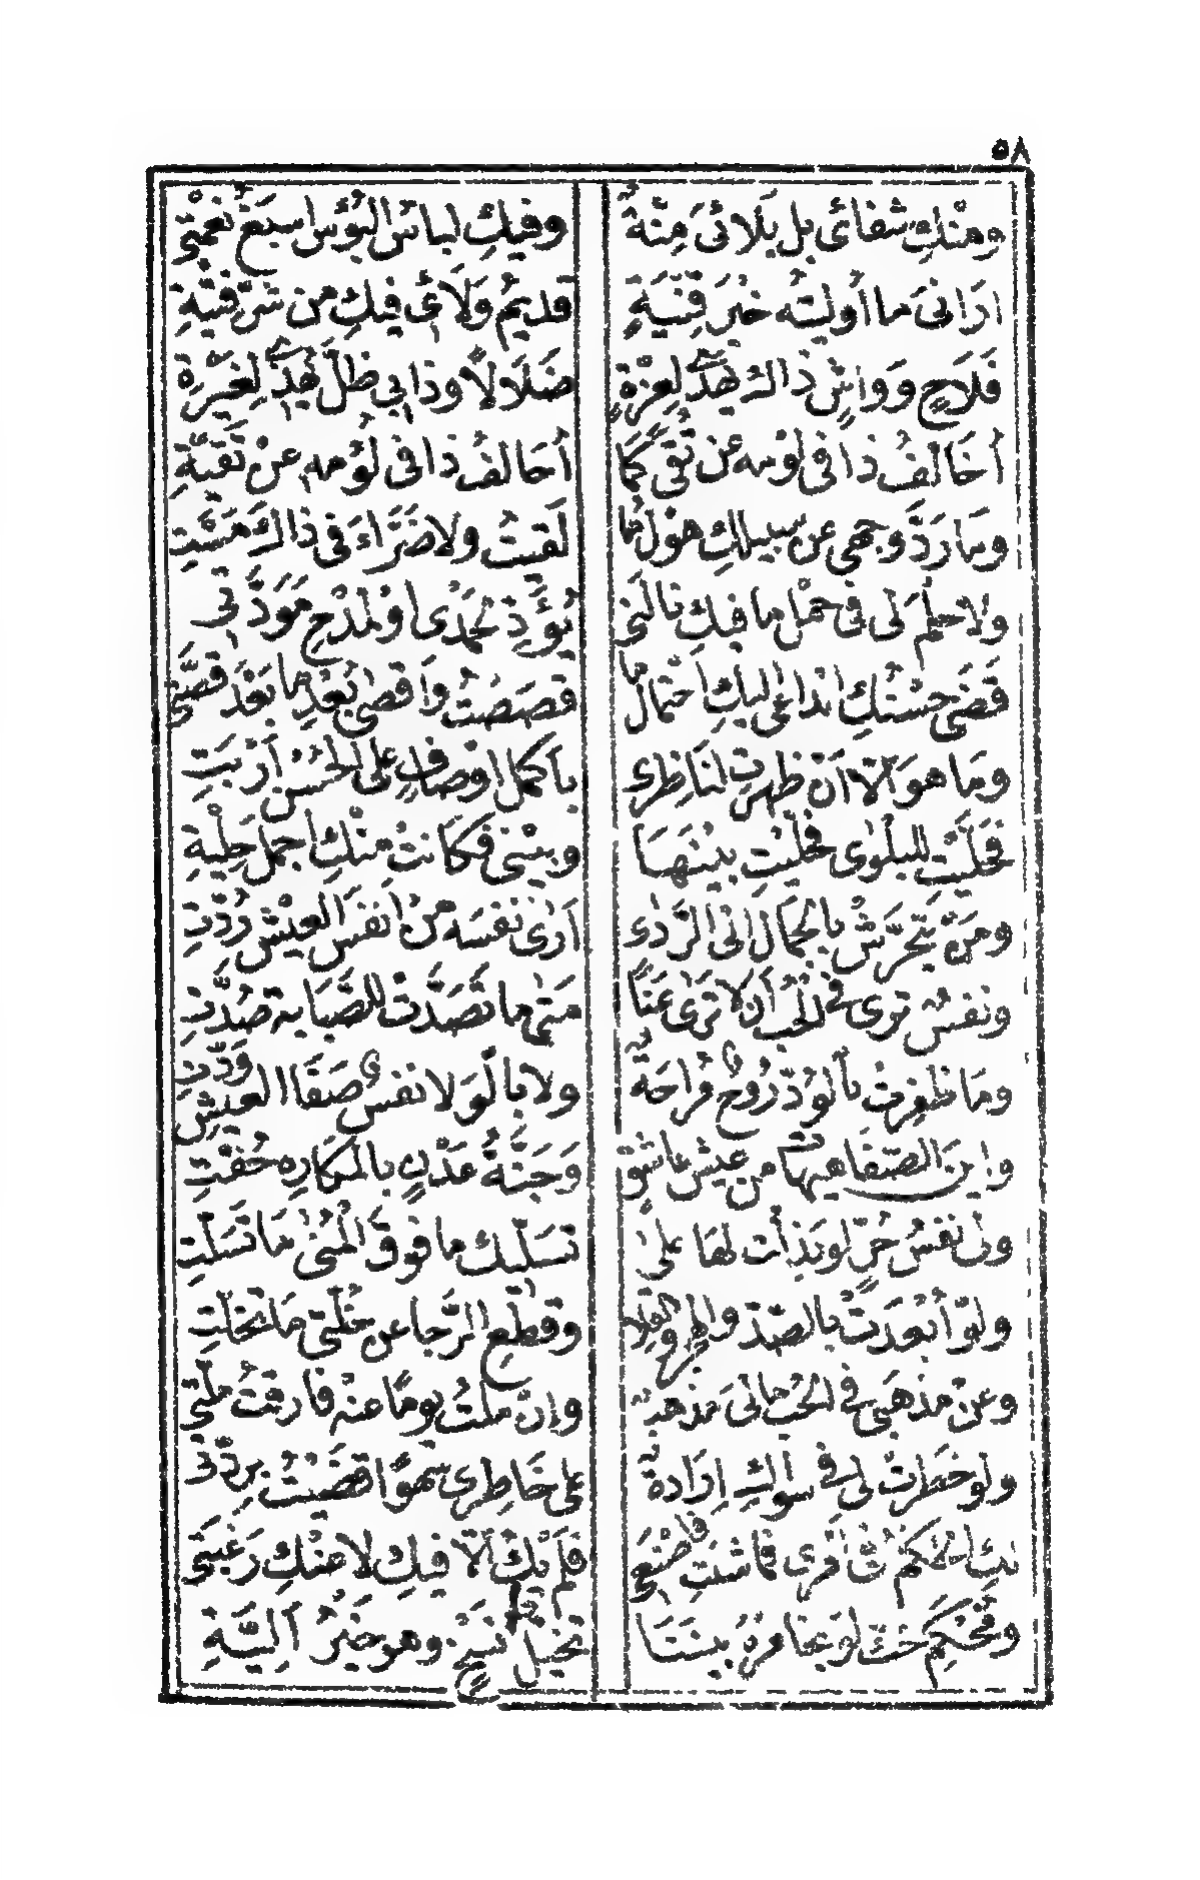 ٥٨
ومنك شقائي بل بلائي منة وفيك لباس البؤس اسبغ نعمتي
اراني ما أوليته خير قنية قديم ولائي فيك من شر فتية
فلاح وواش ذاك يهدي لعزة ضلالا وذا بي ظل يهذي لغرة
أخالف ذا في لومه عن تقى كما أخالف ذا في لؤمه عن تقية
وما رد وجهي عن سبيلك هول ما لقيت ولا ضراء في ذاك مست
ولا حلم لي في حمل ما فيك نالني يؤدي لحمدي او لمدح مودتي
قضى حسنك الداعي اليك احتمال ما قصصت واقصى بعد ما بعد قصتي
وما هو الا ان ظهرت لناظري باكمل اوصاف على الحسن اربت
فحليت لي البلوى فخليت بينها وبيني فكانت منك اجمل حلية
ومن يتحرش بالجمال الى الردى أرى نفسه من انفس العيش ردت
ونفس ترى في الحب أن لا ترى عنا متى ما تصدت للصبابة صدت
وما ظفرت بالود روح مراحة ولا بالولا نفس صفا العيش ودت
واين الصفا هيهات من عيش عاشق وجنة عدن بالمكاره حفت
ولي نفس حر لو بذلت لها على تسليك ما فوق المنى ما تسلت
ولو أبعدت بالصد والهجر والقلا وقطع الرجا عن خلتي ما تخلت
وعن مذهبي في الحب مالي مذهب وإن ملت يوما عنه فارقت ملتي
ولو خطرت لي في سواك إرادة على خاطري سهوا قضيت بردتي
لك الحكم في أمري فما شئت فاصنعي فلم تك الا فيك لا عنك رغبتي
ومحكم حب لم يخامره بيننا تخيل نسخ وهو خير الية